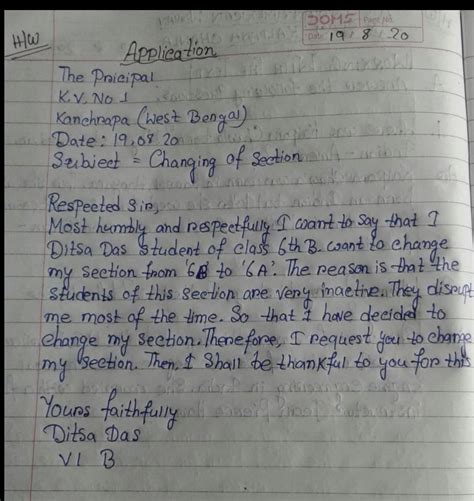 H/W
DOMS Page No.
Date 19 / 8 / 20
Application
The Pricipal
K.V. No 1
Kanchrapa (West Bengal)
Date : 19,08 20
Subject = Changing of Section
Respected Sir,
Most humbly and respectfully I want to say that I
Ditsa Das student of class 6th B. want to change
my section from '6B' to '6A'. The reason is that the
students of this section are very inactive. They disrupt
me most of the time. So that I have decided to
change my section. Therefore, I request you to change
my section. Then, I shall be thankful to you for this
Yours faithfully
Ditsa Das
VI B